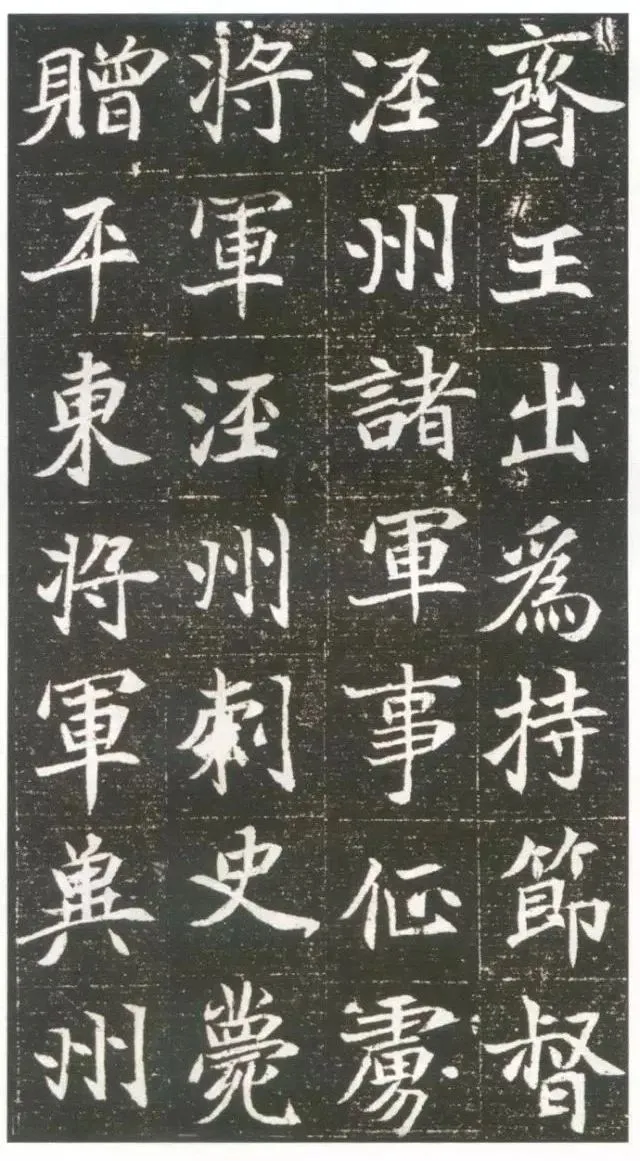 齊王出為持節督
涇州諸軍事征虜
將軍涇州刺史薨
贈平東將軍冀州